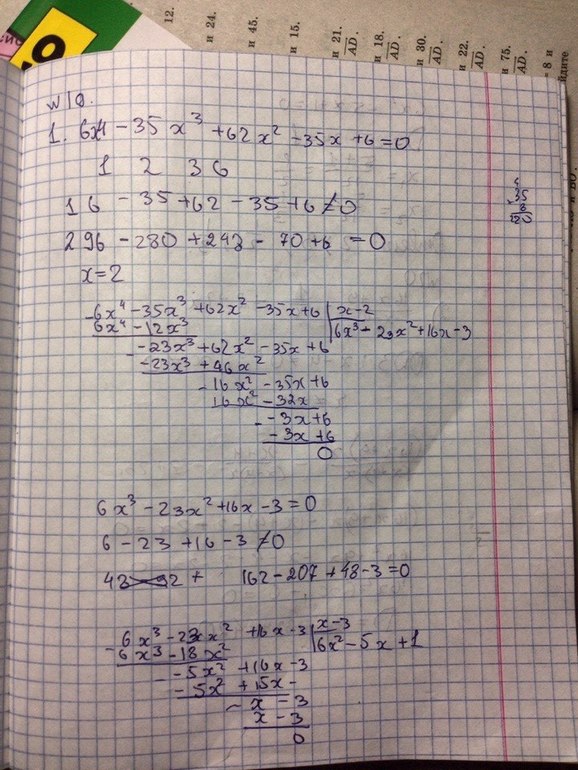 12.
и 24.
и 45.
и 15.
и 21.
AD.
и 18.
AD.
и 30.
AD.
и 22.
AD.
и 75.
AD.
- 8 и
йдите
N 10.
1. 6x4 - 35x³ + 62x² - 35x + 6 = 0
1 2 3 6
1 6 - 35 + 62 - 35 + 6 ≠ 0
2 96 - 280 + 248 - 70 + 6 = 0
x = 2
35
× 8
120
- 6x⁴ - 35x³ + 62x² - 35x + 6 | x - 2
6x⁴ - 12x³ | 6x³ - 23x² + 16x - 3
- -23x³ + 62x² - 35x + 6
-23x³ + 46x²
- 16x² - 35x + 6
16x² - 32x
- -3x + 6
-3x + 6
0
6x³ - 23x² + 16x - 3 = 0
6 - 23 + 16 - 3 ≠ 0
162 - 207 + 48 - 3 = 0
- 6x³ - 23x² + 16x - 3 | x - 3
6x³ - 18x² | 6x² - 5x + 1
- -5x² + 16x - 3
-5x² + 15x
- x - 3
x - 3
0